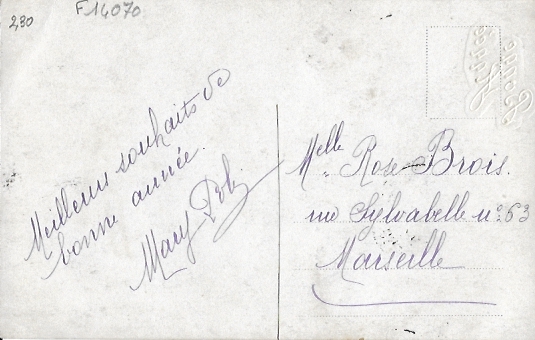 230
F 14070
Meilleurs souhaits de
bonne année.
Mary
Melle Rose Brois.
rue Sylvabelle n° 63
Marseille